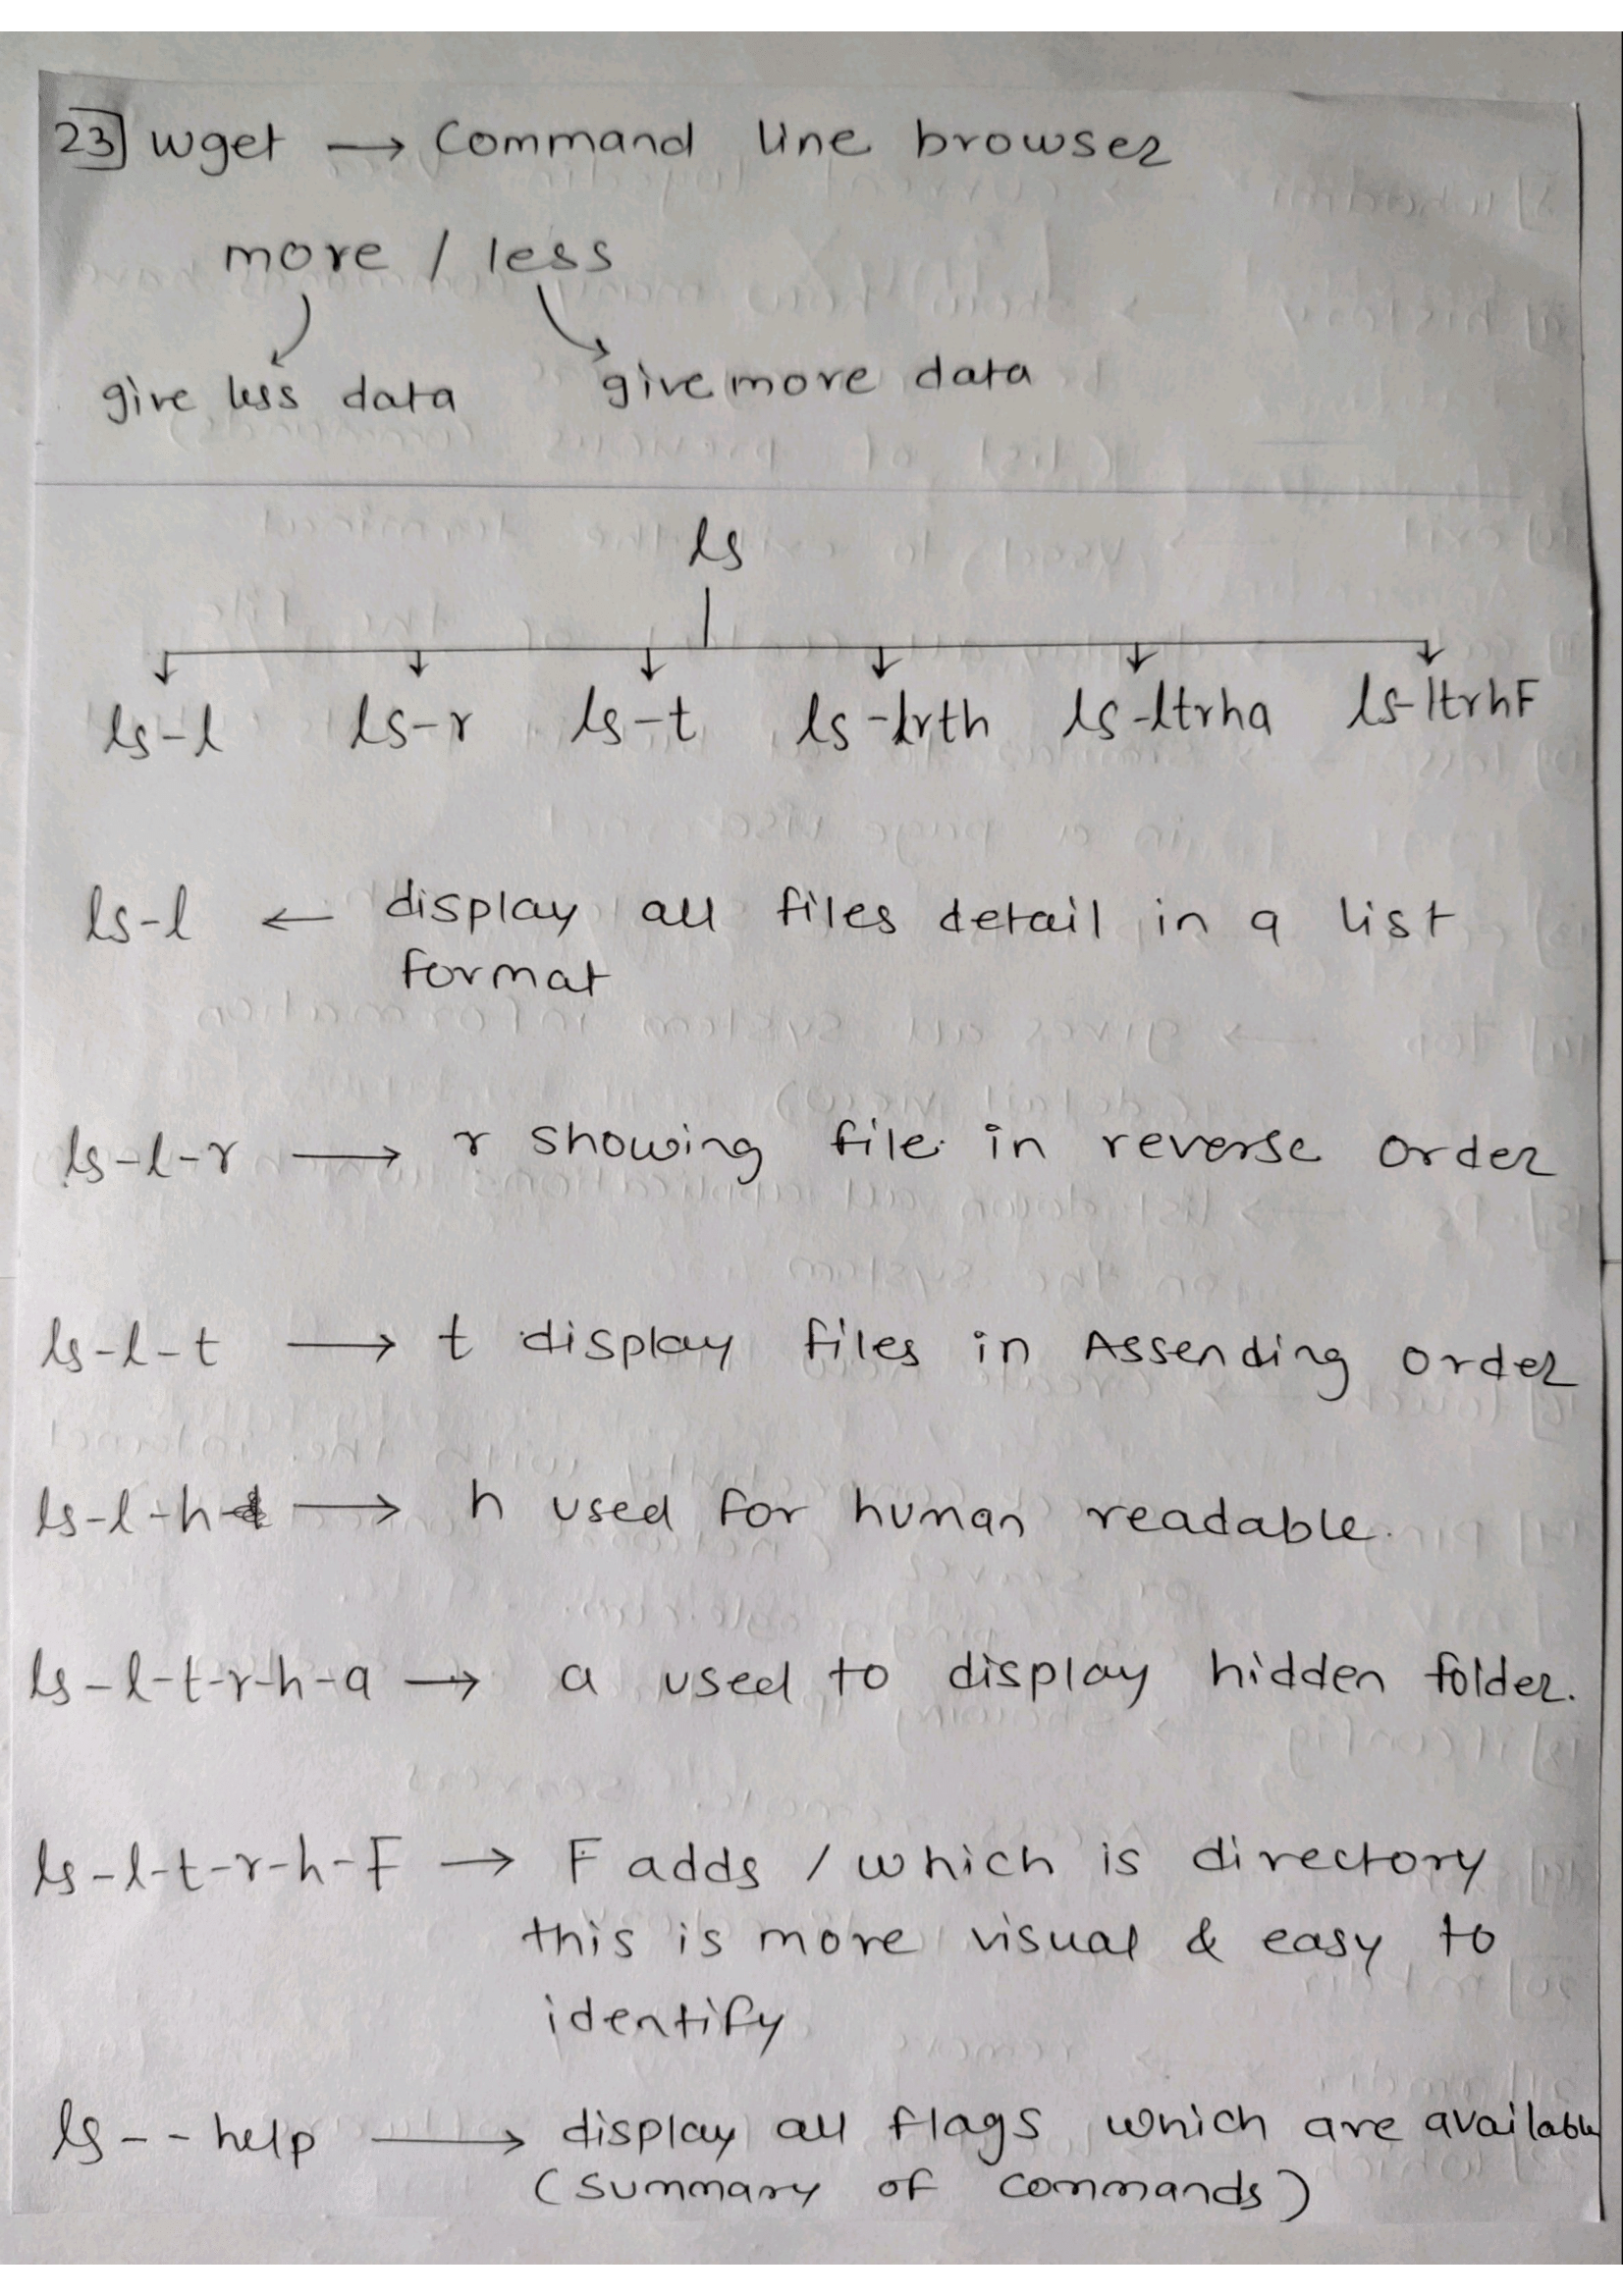 23] wget → Command line browser
more / less
give less data give more data
ls
ls-l ls-r ls-t ls-lrth ls-ltrha ls-ltrhF
ls-l ← display all files detail in a list
format
ls-l-r → r showing file in reverse order
ls-l-t → t display files in Assending order
ls-l-h → h used for human readable.
ls-l-t-r-h-a → a used to display hidden folder.
ls-l-t-r-h-F → F adds / which is directory
this is more visual & easy to
identify
ls -- help → display all flags which are available
(summary of commands)